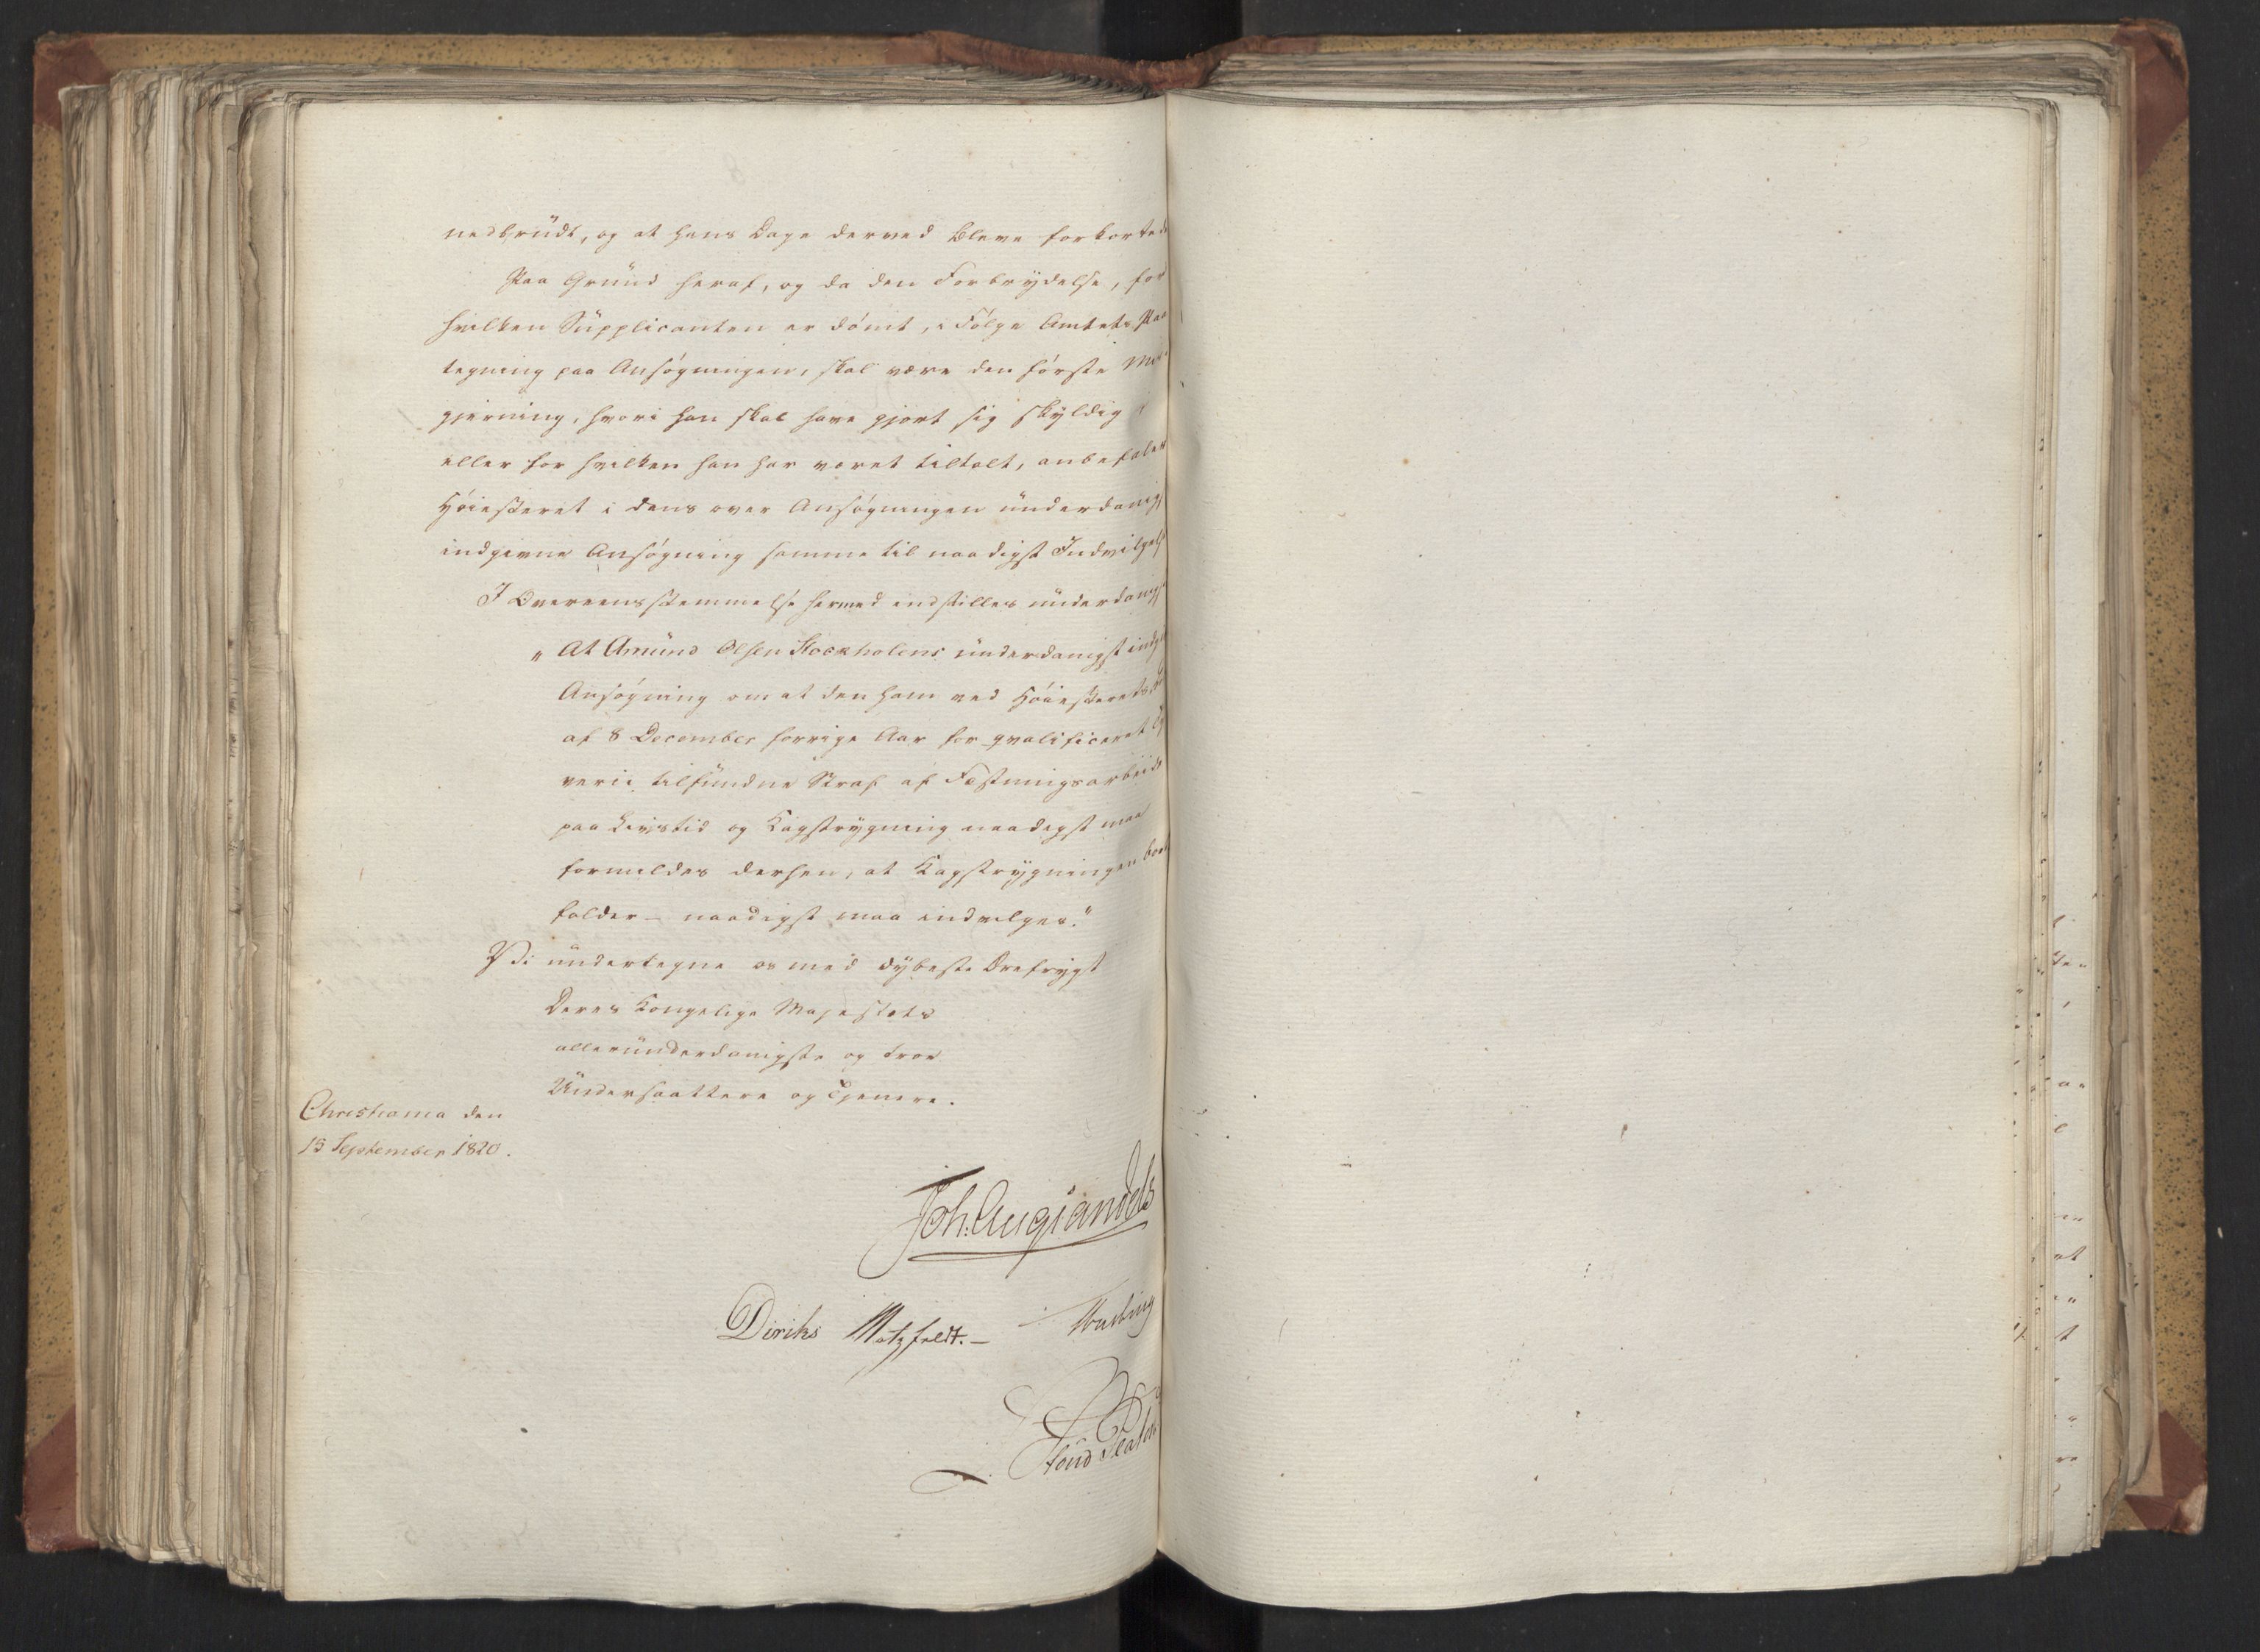 nedbrudt, og at hans Dage derved bleve forkortede
Paa Grund heraf, og da den Forbrydelse, for
hvilken Supplicanten er dømt, i Følge Amtets Paa
tegning paa Ansøgningen, skal være den første Mis
gjerning, hvori han skal have gjort sig skyldig i
eller for hvilken han har været tiltalt, anbefaler
Høiesteret i dens over Ansøgningen underdanigst
indgivne Ansøgning samme til naadigst Indvilgelse
I Overeensstemmelse hermed indstilles underdanigst
„At Amund Olsen Stockholens underdanigst
Ansøgning om at den ham ved Høiesterets
af 8 December forrige Aar for qvalificeret Ty
verie tilfundne Straf af Fæstningsarbeide
paa Livstid og Kagstrygning naadigst maa
formildes derhen, at Kagstrygningen bort
falder – naadigst maa indvilges."
Vi undertegne os med dybeste Ærefrygt
Deres Kongelige Majestæts
allerunderdanigste og troe
Undersaattere og Tjenere.
Christiania den
15 September 1820.
Joh. Aug Sandels
Diriks Motzfeldt. –